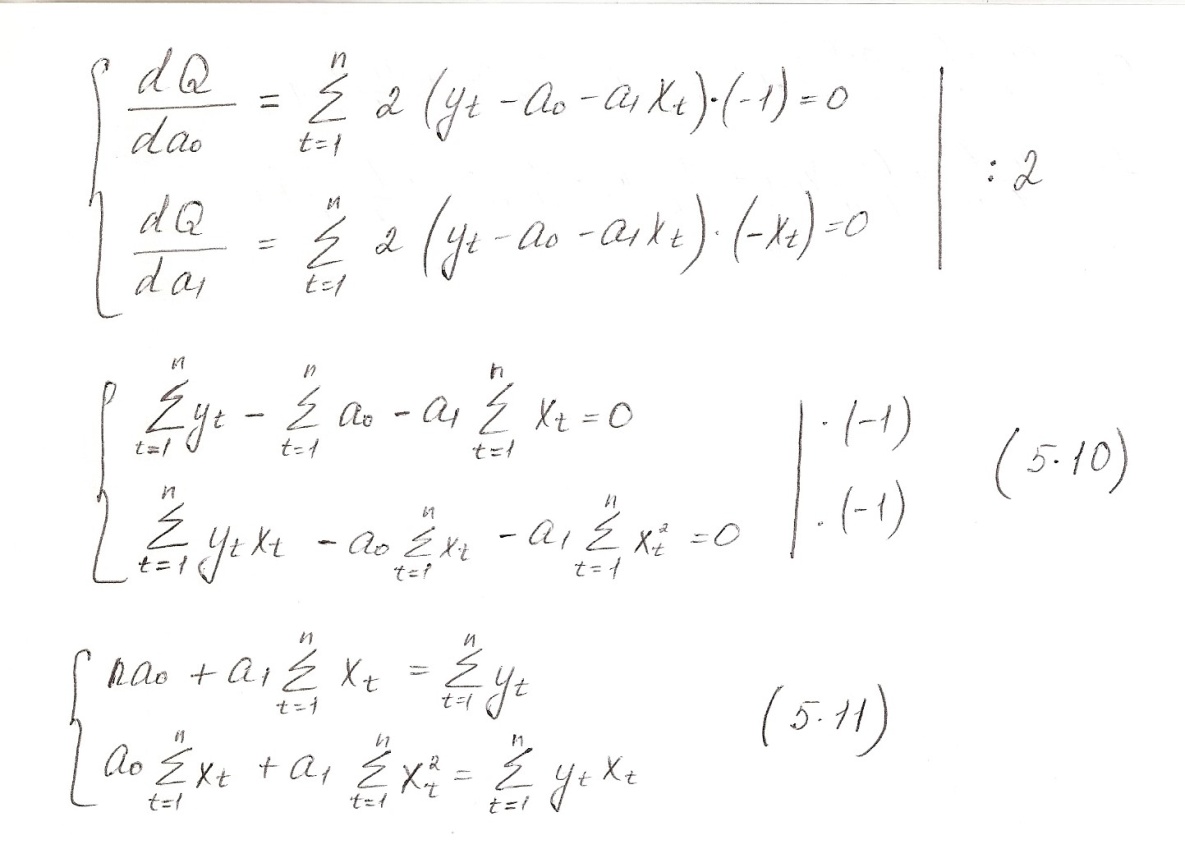 dQ/da₀ = ∑ₜ₌₁ⁿ 2 (yₜ - a₀ - a₁xₜ)·(-1) = 0 | : 2
dQ/da₁ = ∑ₜ₌₁ⁿ 2 (yₜ - a₀ - a₁xₜ)·(-xₜ) = 0
∑ₜ₌₁ⁿ yₜ - ∑ₜ₌₁ⁿ a₀ - a₁ ∑ₜ₌₁ⁿ xₜ = 0 | ·(-1) (5.10)
∑ₜ₌₁ⁿ yₜxₜ - a₀ ∑ₜ₌₁ⁿ xₜ - a₁ ∑ₜ₌₁ⁿ xₜ² = 0 | ·(-1)
na₀ + a₁ ∑ₜ₌₁ⁿ xₜ = ∑ₜ₌₁ⁿ yₜ (5.11)
a₀ ∑ₜ₌₁ⁿ xₜ + a₁ ∑ₜ₌₁ⁿ xₜ² = ∑ₜ₌₁ⁿ yₜxₜ